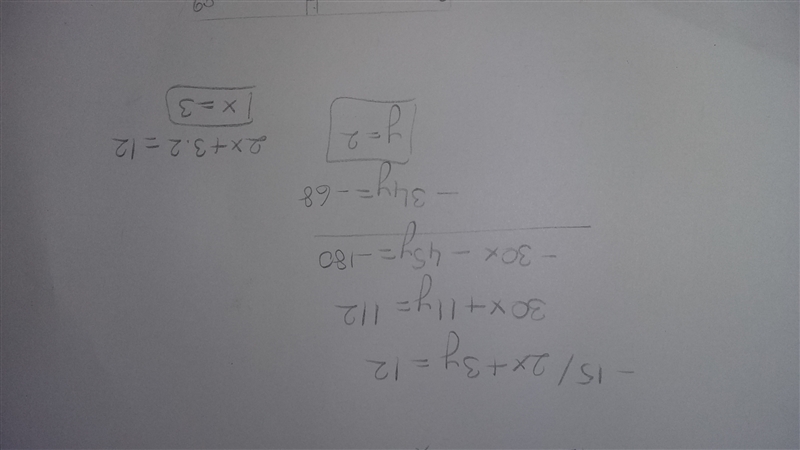 -15/ 2x+3y=12
30x+11y=112
-30x-45y=-180
-34y=-68
y=2
2x+3.2=12
x=3